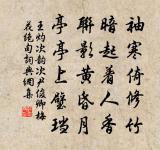 袖寒倚修竹
暗起着人香
聯影黃昏月
亭亭上璧璫
王灼次韵次尹俊卿梅
花絕句詞典網集